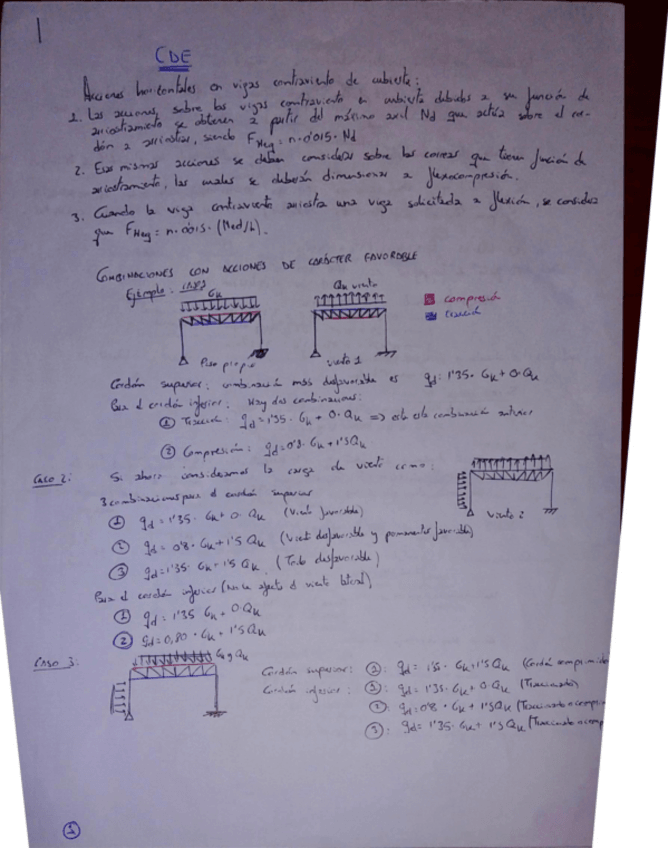 1
CDE
Acciones horizontales en vigas contraviento de cubierta:
1. Las acciones sobre las vigas contraviento en cubierta debidas a su función de
arriostramiento se obtienen a partir del máximo axil Nd que actúa sobre el cor-
dón a arriostrar, siendo F_Heq = n·0'015·Nd
2. Esas mismas acciones se deben considerar sobre las correas que tienen función de
arriostramiento, las cuales se deberán dimensionar a flexocompresión.
3. Cuando la viga contraviento arriostra una viga solicitada a flexión, se considera
que F_Heq = n·0'015·(Med/h).
COMBINACIONES CON ACCIONES DE CARÁCTER FAVORABLE
Ejemplo:
Gk
Qk viento
compresión
tracción
Peso propio
viento 1
Cordón superior: combinación más desfavorable es gd = 1'35·Gk + 0·Qk
Para el cordón inferior: Hay dos combinaciones:
① Tracción: gd = 1'35·Gk + 0·Qk => esta combinación anterior
② Compresión: gd = 0'8·Gk + 1'5Qk
CASO 2: Si ahora consideramos la carga de viento como:
viento 2
3 combinaciones para el cordón superior
① gd = 1'35·Gk + 0·Qk (Viento favorable)
② gd = 0'8·Gk + 1'5 Qk (Viento desfavorable y permanente favorable)
③ gd = 1'35·Gk + 1'5 Qk (Todo desfavorable)
Para el cordón inferior (no le afecta el viento lateral)
① gd = 1'35 Gk + 0·Qk
② gd = 0,80·Gk + 1'5Qk
CASO 3:
Gk y Qk
Cordón superior: ①: gd = 1'35·Gk + 1'5 Qk (Cordón comprimido
Cordón inferior: ①: gd = 1'35·Gk + 0 Qk (Traccionado)
②: gd = 0'8·Gk + 1'5Qk (Traccionado o compri
③: gd = 1'35·Gk + 1'5 Qk (Traccionado o comp
1